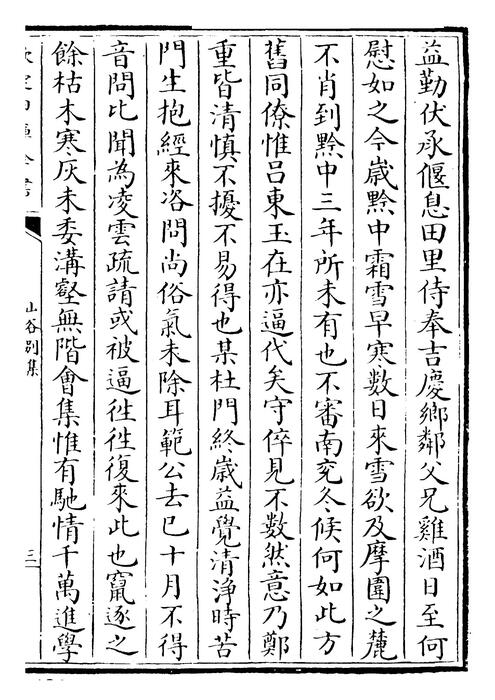 益勤伏承偃息田里侍奉吉慶鄉鄰父兄雞酒日至何
慰如之今歲黔中霜雪早寒數日來雪欲及摩圍之麓
不肖到黔中三年所未有也不審南兖冬候何如此方
舊同僚惟呂東玉在亦逼代矣守倅見不數然意乃鄭
重皆清慎不擾不易得也某杜門終歲益覺清淨時苦
門生抱經來咨問尚俗氣未除耳範公去已十月不得
音問比聞為凌雲疏請或被逼徃徃復來此也竄逐之
餘枯木寒灰未委溝壑無階會集惟有馳情千萬進學
山谷別集
三